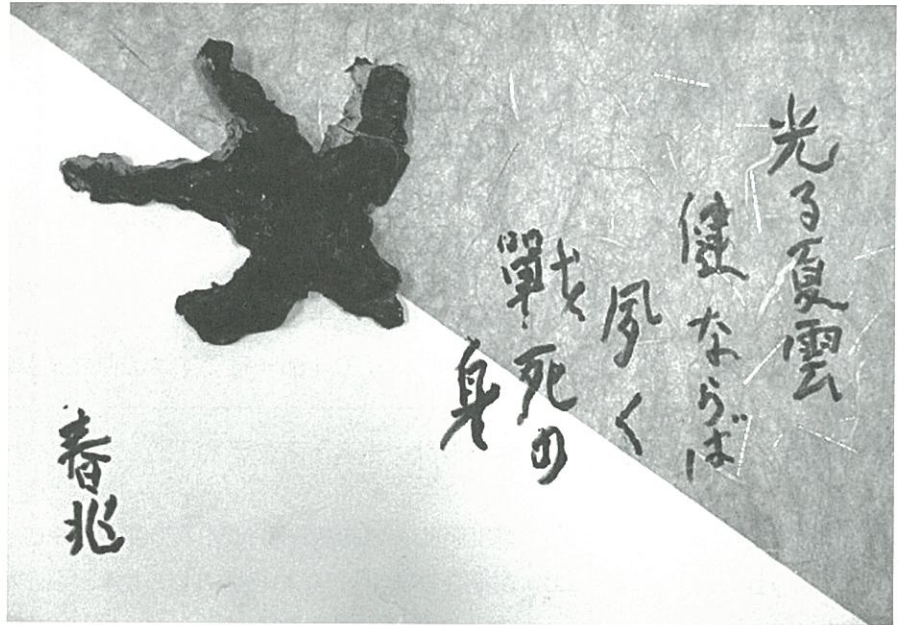 光る夏雲
健ならば
夙く
戰死の
身
春兆